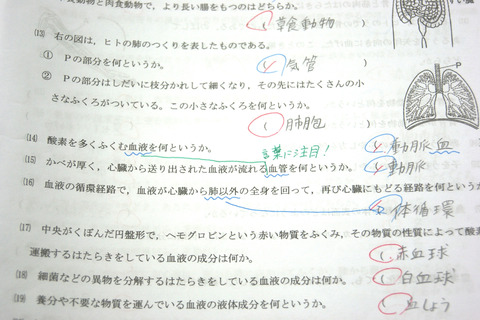 動物と肉食動物で，より長い腸をもつのはどちらか。
草食動物
(13) 右の図は，ヒトの肺のつくりを表したものである。
① Pの部分を何というか。
気管 )
② Pの部分はしだいに枝分かれして細くなり，その先にはたくさんの小
さなふくろがついている。この小さなふくろを何というか。
肺胞
P
(14) 酸素を多くふくむ血液を何というか。
動脈血
言葉に注目!
(15) かべが厚く，心臓から送り出された血液が流れる血管を何というか。
動脈
(16) 血液の循環経路で，血液が心臓から肺以外の全身を回って，再び心臓にもどる経路を何というか
体循環
(17) 中央がくぼんだ円盤形で，ヘモグロビンという赤い物質をふくみ，その物質の性質によって酸素
運搬するはたらきをしている血液の成分は何か。
赤血球
(18) 細菌などの異物を分解するはたらきをしている血液の成分は何か。
白血球
(19) 養分や不要な物質を運んでいる血液の液体成分を何というか。
血しょう